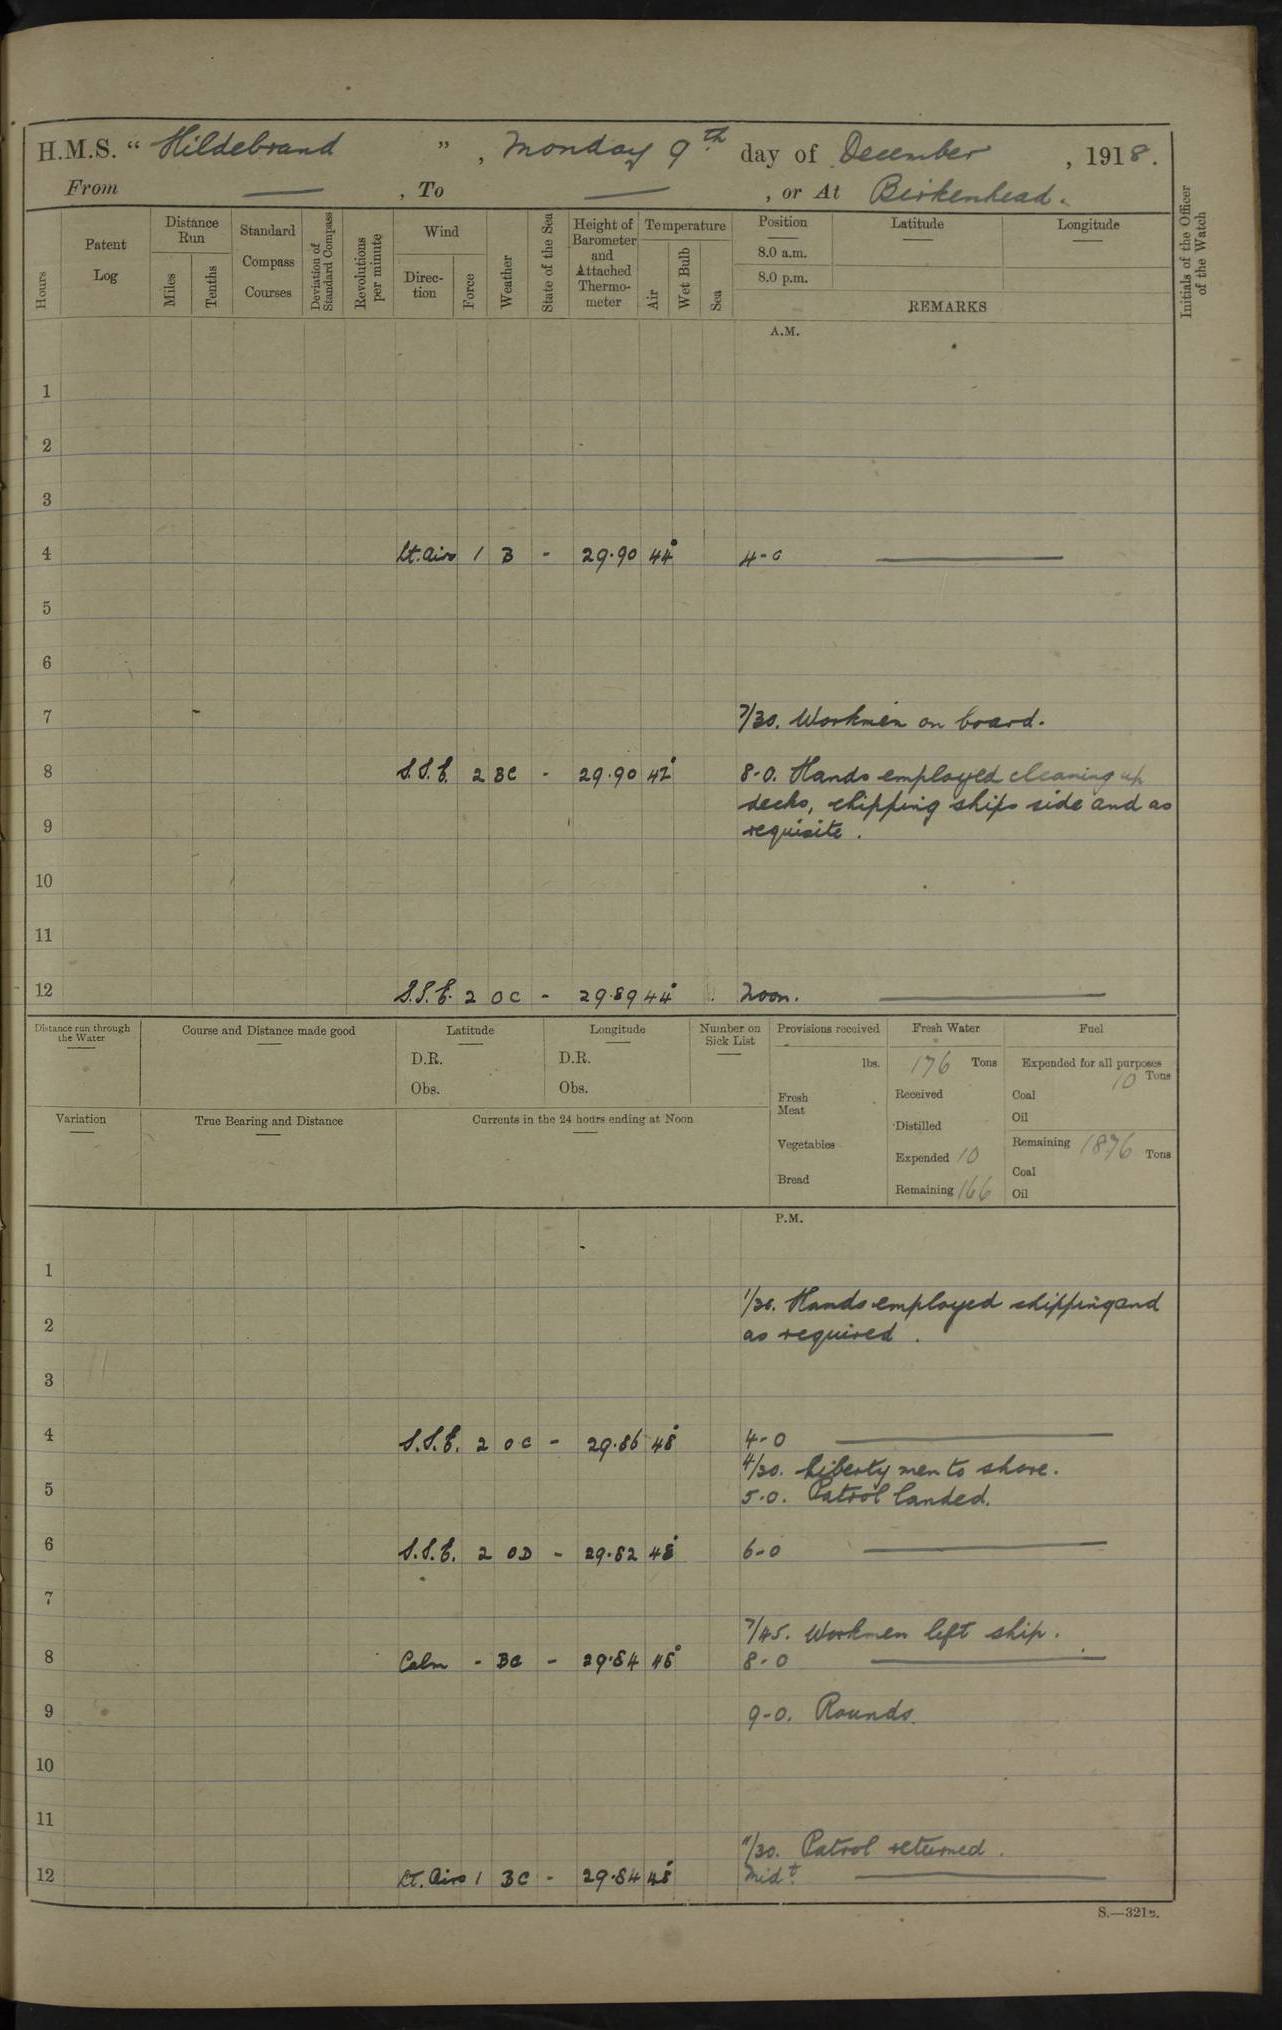 H.M.S. “ Hildebrand ” , Monday 9th day of December , 1918.
From — , To — , or At Birkenhead.
Hours
Patent Log
Distance Run
Miles
Tenths
Standard Compass Courses
Deviation of Standard Compass
Revolutions per minute
Wind
Direc-tion
Force
Weather
State of the Sea
Height of Barometer and Attached Thermo-meter
Temperature
Air
Wet Bulb
Sea
Position Latitude Longitude
8.0 a.m.
8.0 p.m.
REMARKS
Initials of the Officer of the Watch
A.M.
1
2
3
4 Lt. Airs 1 B - 29.90 44° 4-0 —
5
6
7 7/30. Workmen on board.
8 S.S.E. 2 BC - 29.90 42° 8-0. Hands employed cleaning up
decks, chipping ships side and as
9 requisite.
10
11
12 S.S.E. 2 OC - 29.89 44° Noon. —
Distance run through the Water
Course and Distance made good
Latitude
D.R.
Obs.
Longitude
D.R.
Obs.
Number on Sick List
Provisions received
lbs.
Fresh Meat
Vegetables
Bread
Fresh Water
176 Tons
Received
Distilled
Expended 10
Remaining 166
Fuel
Expended for all purposes
10 Tons
Coal
Oil
Remaining 1876 Tons
Coal
Oil
Variation
True Bearing and Distance
Currents in the 24 hours ending at Noon
P.M.
1
1/30. Hands employed chipping and
2 as required.
3
4 S.S.E. 2 OC - 29.86 48° 4-0 —
4/30. Liberty men to shore.
5 5-0. Patrol landed.
6 S.S.E. 2 OD - 29.82 48° 6-0 —
7
7/45. Workmen left ship.
8 Calm - BC - 29.84 48° 8-0 —
9 9-0. Rounds.
10
11
11/30. Patrol returned.
12 Lt. Airs 1 BC - 29.84 48° Midt. —
S.—321